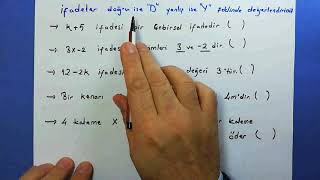 ifadeler doğru ise "D" yanlış ise "Y" şeklinde değerlendiriniz
→ k+5 ifadesi bir Cebirsel ifadedir ( )
→ 3x-2 ifadesi 3 ve -2 dir. ( )
→ 12-2k ifades değeri 3'tür. ( )
→ Bir kenarı 4m'dir. ( )
→ 4 kaleme X kaleme
öder ( )